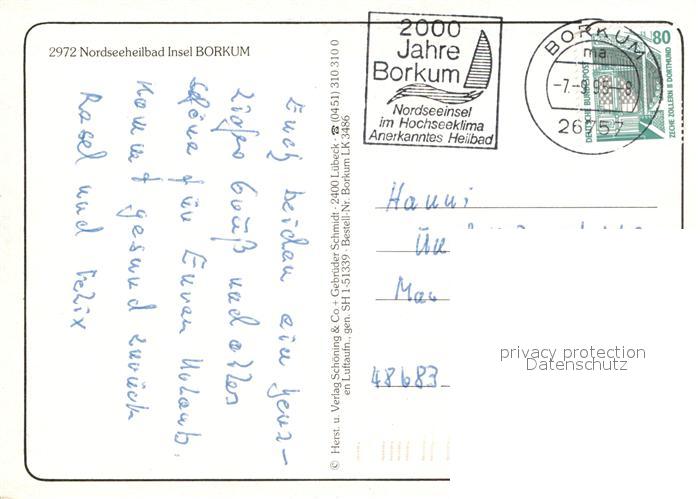 2972 Nordseeheilbad Insel BORKUM
2000
Jahre
Borkum
Nordseeinsel
im Hochseeklima
Anerkanntes Heilbad
BORKUM
ma
-7.-9.95-8
26757
80
DEUTSCHE BUNDESPOST
ZECHE ZOLLERN II DORTMUND
Euch beiden ein herz-
liches Gruß und alles
schöne für Euren Urlaub.
Kommt gesund zurück
und Felix
© Herst. u. Verlag Schöning & Co.+ Gebrüder Schmidt · 2400 Lübeck · ☎ (0451) 310 310 0
en Luftaufn., gen. SH 1-51339 · Bestell-Nr. Borkum LK 3486
Hanni
48683
privacy protection
Datenschutz